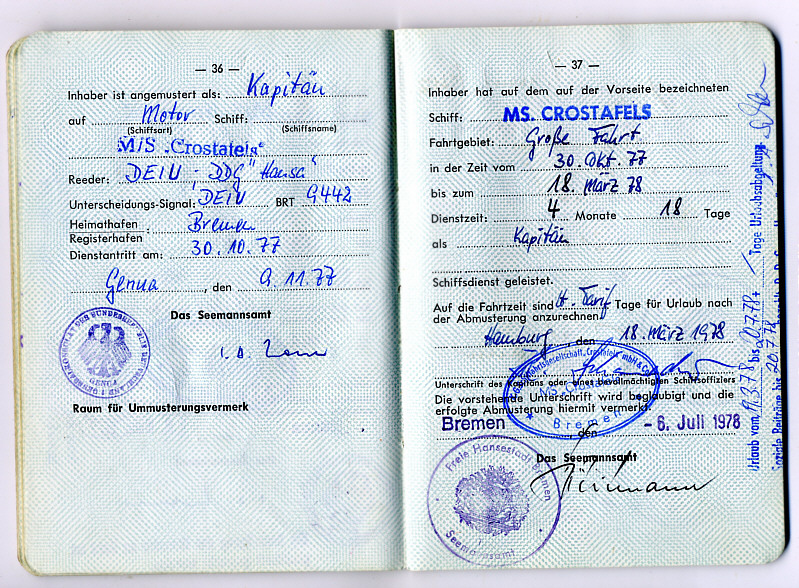 — 36 —
Inhaber ist angemustert als: Kapitän
auf Motor Schiff:
(Schiffsart) (Schiffsname)
M/S „Crostafels"
Reeder: DEIU - DDG "Hansa"
Unterscheidungs-Signal: DEIU BRT 9442
Heimathafen : Bremen
Registerhafen
Dienstantritt am: 30.10.77
Genua, den 9.11.77
Das Seemannsamt
GENUA
Raum für Ummusterungsvermerk
— 37 —
Inhaber hat auf dem auf der Vorseite bezeichneten
Schiff: MS. CROSTAFELS
Fahrtgebiet: Große Fahrt
in der Zeit vom 30. Okt. 77
bis zum 18. März 78
Dienstzeit: 4 Monate 18 Tage
als Kapitän
Schiffsdienst geleistet.
Auf die Fahrtzeit sind lt. Tarif Tage für Urlaub nach
der Abmusterung anzurechnen
Hamburg, den 18. März 1978
Unterschrift des Kapitäns oder eines bevollmächtigten Schiffsoffiziers
Die vorstehende Unterschrift wird beglaubigt und die
erfolgte Abmusterung hiermit vermerkt.
Bremen, den - 6. Juli 1978
Das Seemannsamt
Freie Hansestadt Bremen
Seemannsamt
MS. Crostafels
Bremen
Urlaub vom 19.3.78 bis 20.7.78 Tage Urlaubsabgeltung
Soziale Beiträge bis 20.7.78